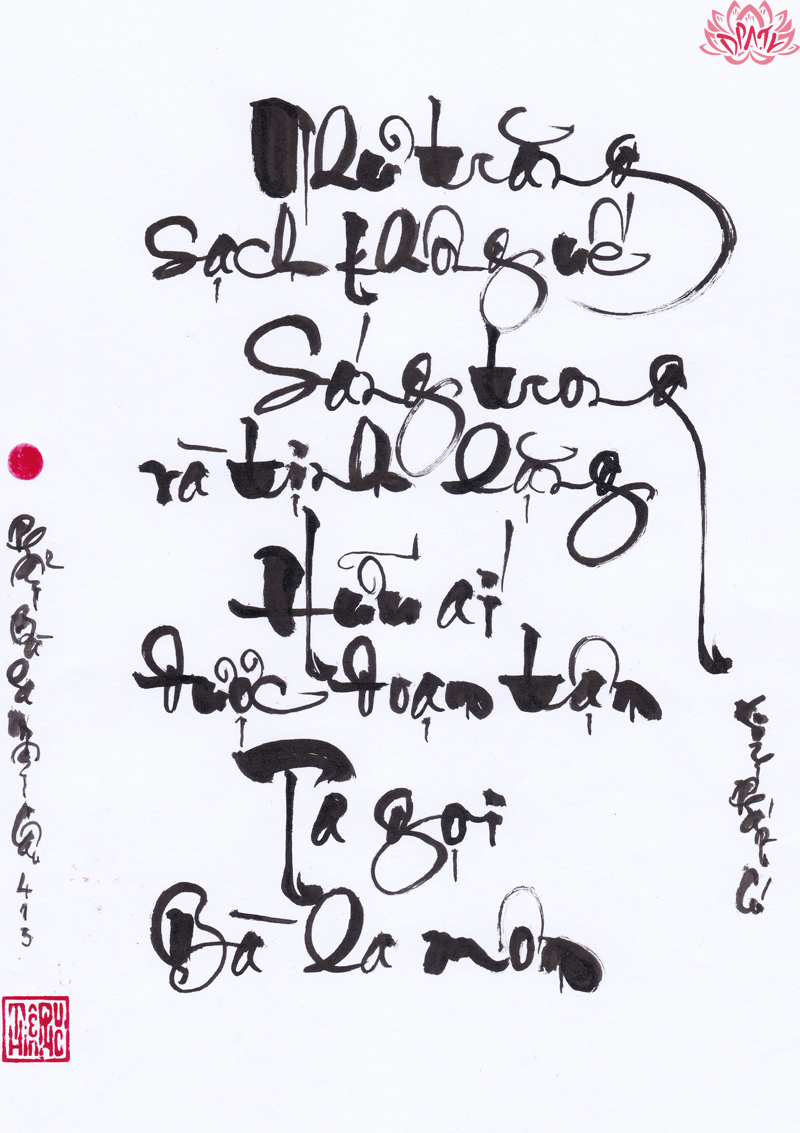 Như trăng
Sạch không uế
Sáng trong
và tịnh lặng
Hữu ái
được đoạn tận
Ta gọi
Bà la môn
Kinh Pháp Cú
Phẩm Bà La Môn
413